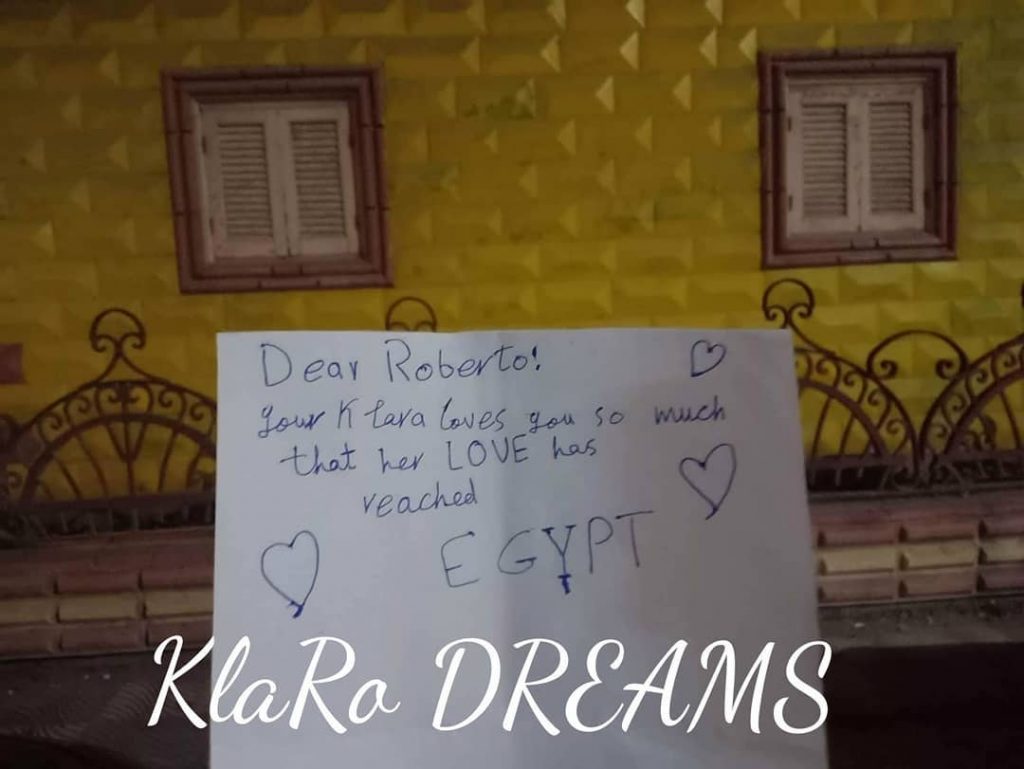 Dear Roberto!
your Klara loves you so much
that her LOVE has
reached
EGYPT
KlaRo DREAMS